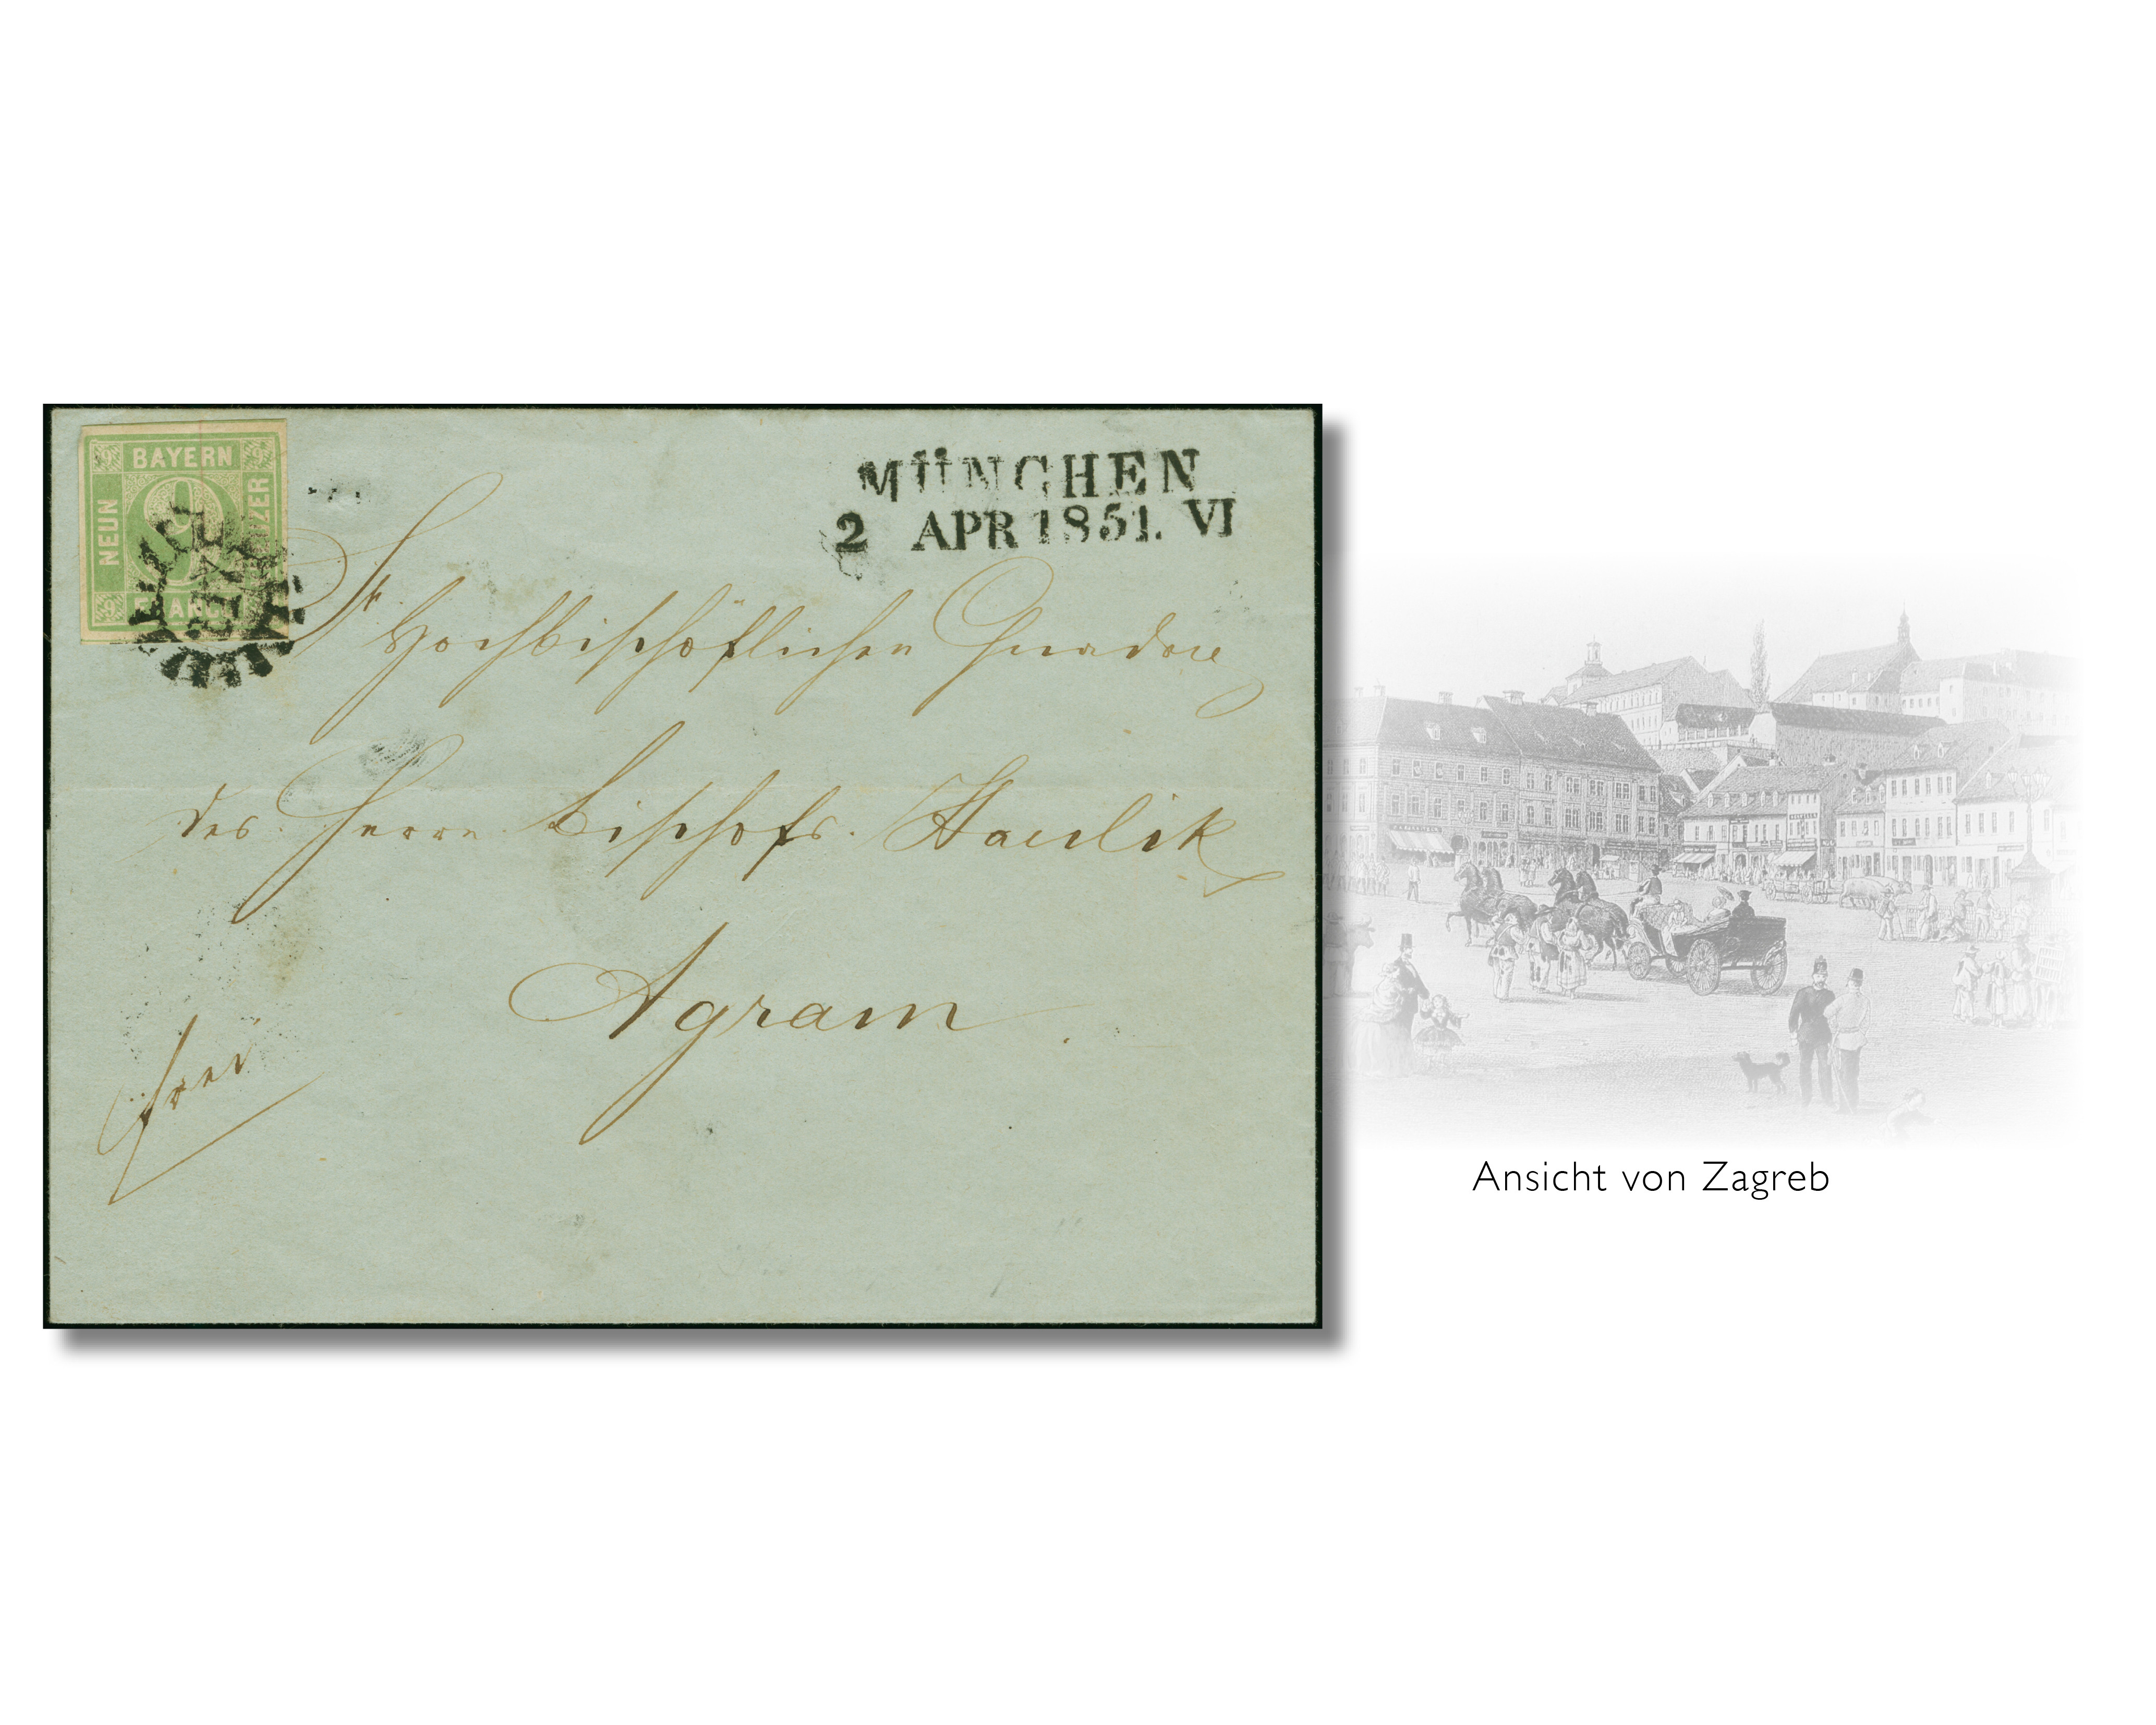 BAYERN
9 9
NEUN
9
MÜNCHEN
2 APR 1851. VI
Sr
Hochbischöflichen Gnaden
des Herrn Bischofs. Haulik
Agram.
frei
Ansicht von Zagreb